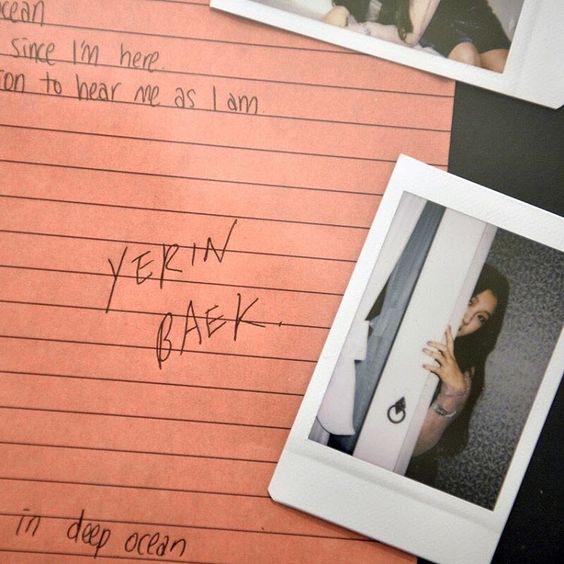 ocean
since I'm here.
to hear me as I am.
YERIN
BAEK.
in deep ocean